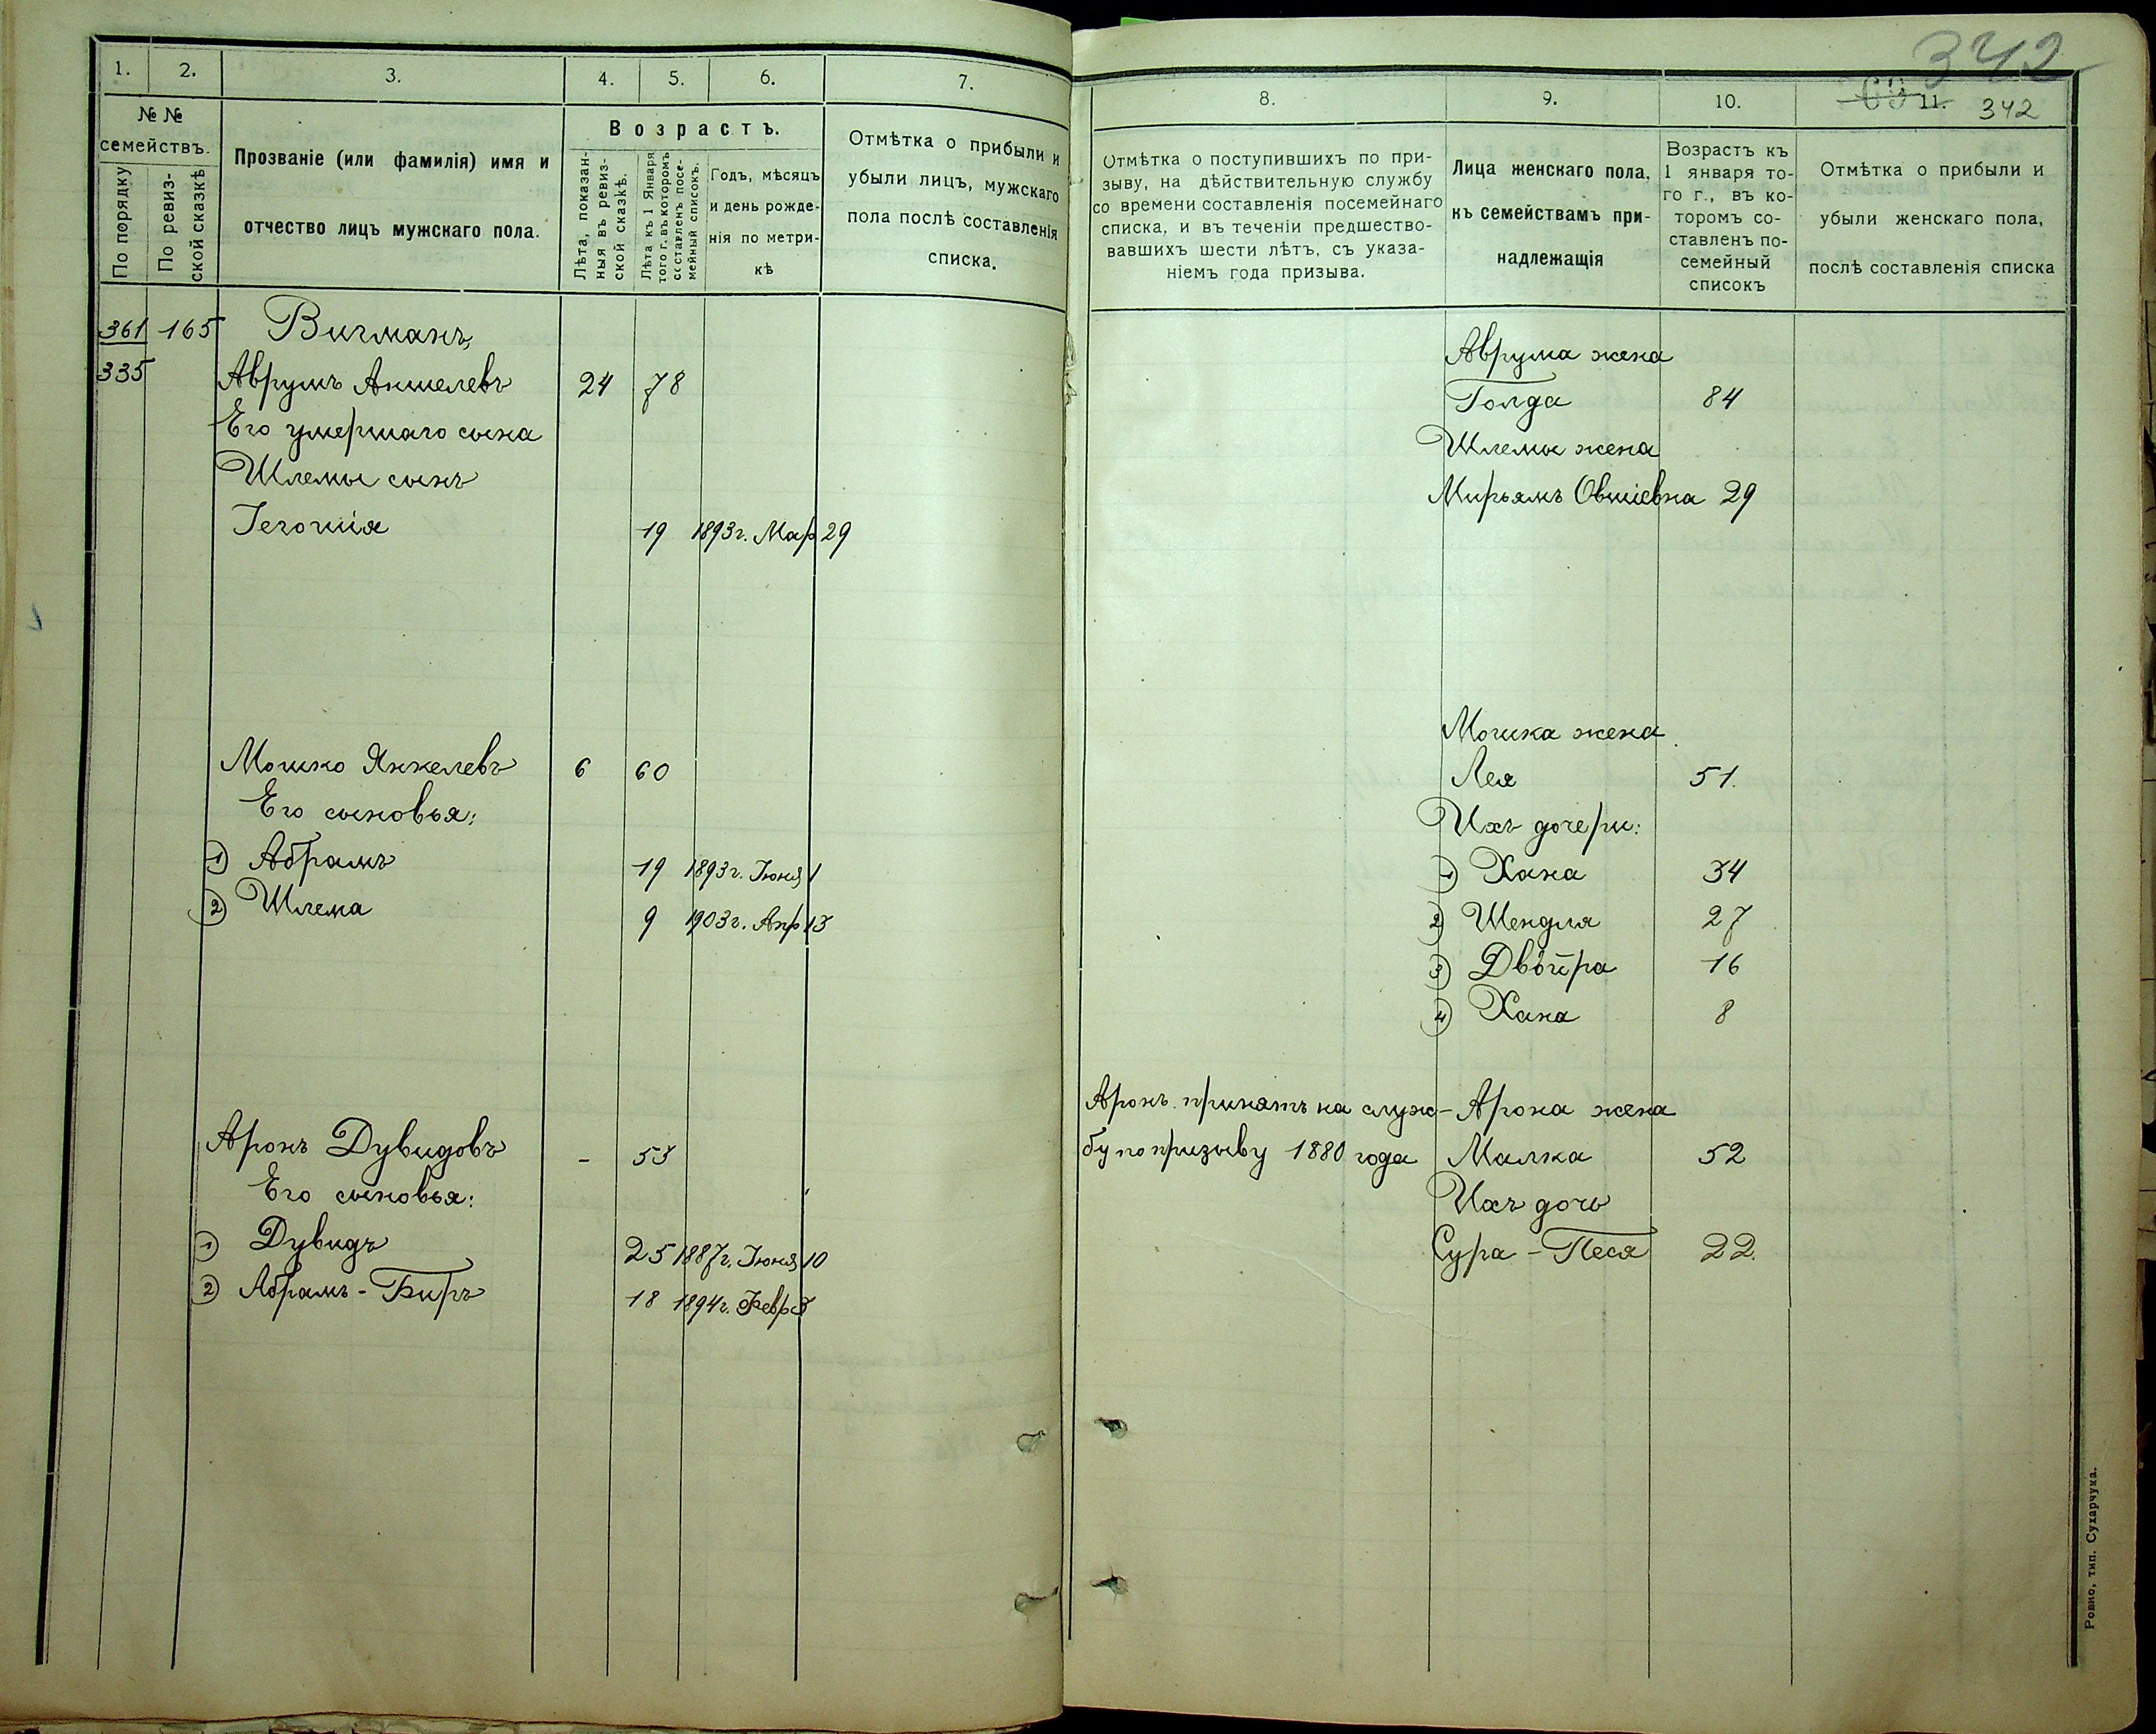 342
1. 2. 3. 4. 5. 6. 7.
№ №
семействъ.
По порядку
По ревиз-
ской сказкѣ
Прозваніе (или фамилія) имя и
отчество лицъ мужскаго пола.
Возрастъ.
Лѣта, показан-
ныя въ ревиз-
ской сказкѣ.
Лѣта къ 1 Января
того г. въ которомъ
составленъ посе-
мейный списокъ.
Годъ, мѣсяцъ
и день рожде-
нія по метри-
кѣ
Отмѣтка о прибыли и
убыли лицъ, мужскаго
пола послѣ составленія
списка.
361 165 Вигманъ,
335
Аврумъ Аншелевъ 24 78
Его умершаго сына
Шлемы сынъ
Гегошія 19 1893г. Мар 29
Мошко Янкелевъ 6 60
Его сыновья:
1) Абрамъ 19 1893г. Іюня 1
2) Шлема 9 1903г. Апр 13
Аронъ Дувидовъ - 53
Его сыновья:
1) Дувидъ 25 1887г. Іюня 10
2) Абрамъ-Биръ 18 1894г. Февр 3
8. 9. 10. 11. 342
Отмѣтка о поступившихъ по при-
зыву, на дѣйствительную службу
со времени составленія посемейнаго
списка, и въ теченіи предшество-
вавшихъ шести лѣтъ, съ указа-
ніемъ года призыва.
Лица женскаго пола,
къ семействамъ при-
надлежащія
Возрастъ къ
1 января то-
го г., въ ко-
торомъ со-
ставленъ по-
семейный
списокъ
Отмѣтка о прибыли и
убыли женскаго пола,
послѣ составленія списка
Аврума жена
Голда 84
Шлемы жена
Мирьямъ Овшіевна 29
Мошка жена
Лея 51.
Ихъ дочери:
1) Хана 34
2) Шендля 27
3) Двойра 16
4) Хана 8
Аронъ принятъ на служ- Арона жена
бу по призыву 1880 года Малка 52
Ихъ дочь
Сура-Песя 22.
Ровно, тип. Сухарчука.